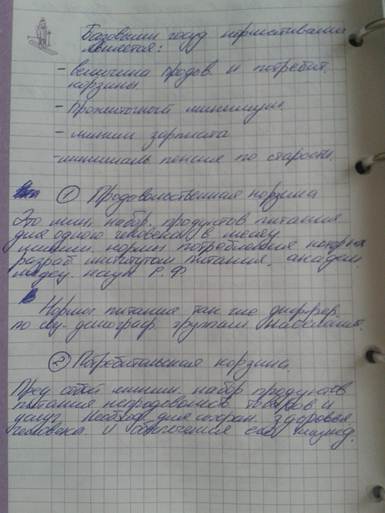 Базовыми госуд нормативами
является:
- величина продов. и потребит.
корзины.
- Прожиточный минимум.
- миним зарплата
- минималь пенсия по старости.
① Продовольственная корзина
Это мин. набор. продуктов питания
для одного человека в месяц
миним. нормы. потребления которых
разраб. институтом питания, академ
медец. наук Р Ф
Нормы питания так же диффер.
по соц-демограф. группам населения.
② Потребительская корзина.
Пред собой миним. набор продуктов
питания непродовольств товаров и
услуг. необход для сохран здоровья
человека и обеспечения его жизнед.